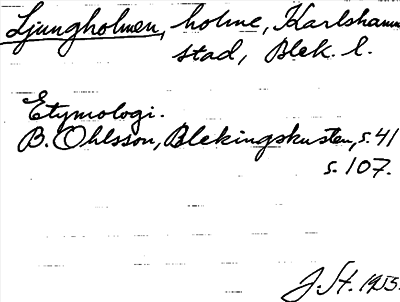 Ljungholmen, holme, Karlshamn
stad, Blek. l.
Etymologi.
B. Ohlsson, Blekingskusten, s. 41
s. 107.
J. St. 1955.